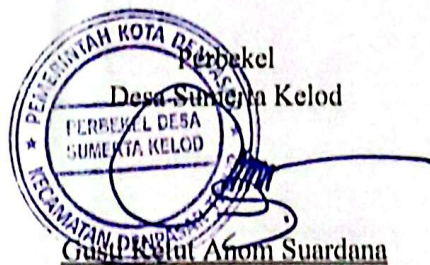 Perbekel
Desa Sumerta Kelod
PEMERINTAH KOTA DENPASAR
PERBEKEL DESA
SUMERTA KELOD
KECAMATAN DENPASAR
Gusti Ketut Anom Suardana